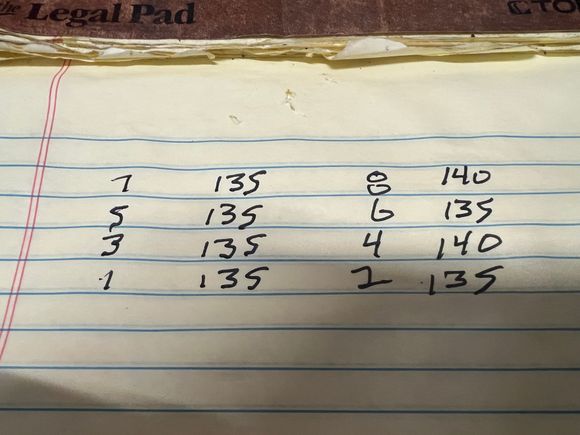 the Legal Pad
7 135 8 140
5 135 6 135
3 135 4 140
1 135 2 135